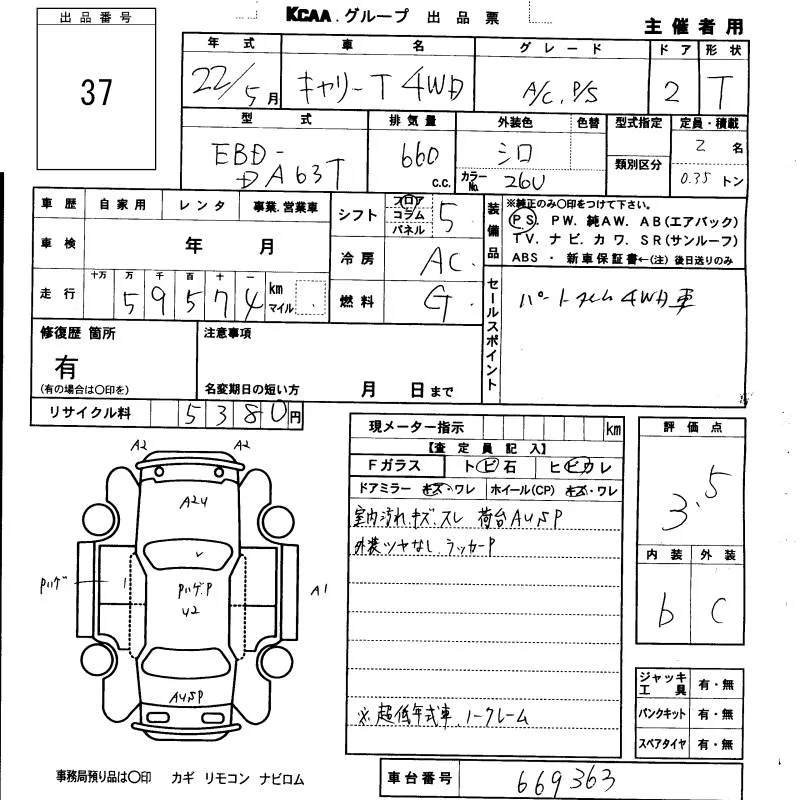 KCAA.グループ 出品票
主催者用
出品番号
37
年式 車名 グレード ドア 形状
22/5月 キャリーT 4WD A/C.P/S 2 T
型式 排気量 外装色 色替 型式指定 定員・積載
EBD-DA63T 660 c.c. シロ 2名
カラーNo. 26U 類別区分 0.35トン
車歴 自家用 レンタ 事業.営業車
車検 年 月
走行 十万 万 千 百 十 一
5 9 5 7 4 km マイル
シフト フロア コラム パネル 5
冷房 AC
燃料 G
装備品
※純正のみ〇印をつけて下さい。
PS. PW. 純AW. AB(エアバック)
TV. ナビ. カワ. SR(サンルーフ)
ABS・新車保証書←(注)後日送りのみ
セールスポイント
パートタイム4WD車
修復歴 箇所
有
(有の場合は〇印を)
注意事項
名変期日の短い方 月 日まで
リサイクル料 5380円
現メーター指示 km
【査定員記入】
Fガラス トビ石 ヒビワレ
ドアミラー キズ・ワレ ホイール(CP) キズ・ワレ
室内汚れ.キズ.スレ 荷台AUSP
外装ツヤなし.ラッカーP
※超低年式車.ノークレーム
評価点
3.5
内装 外装
b C
ジャッキ工具 有・無
パンクキット 有・無
スペアタイヤ 有・無
A2 A2
A2U
Pハゲ
Pハゲ.P
U2
A1
AUSP
事務局預り品は〇印 カギ リモコン ナビロム
車台番号 669363